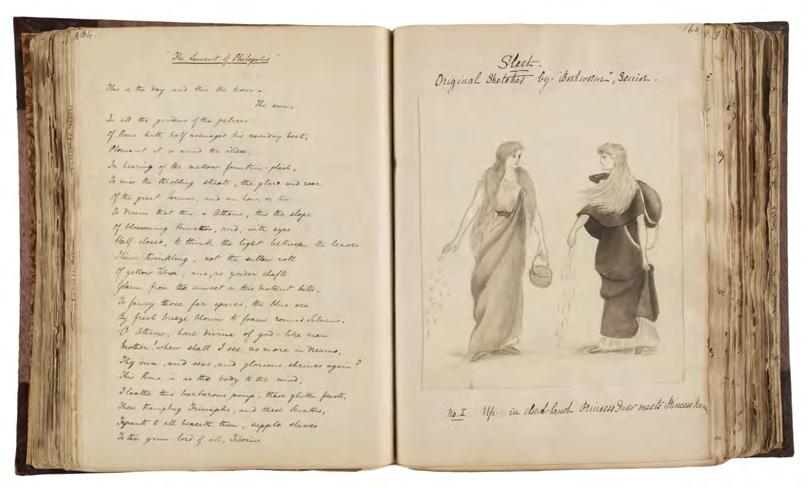 164.
"The Lament of Philopolis"
This is the day and this the hour.
The sun,
In all the gardens of the palaces
Of Rome hath half assuaged his noonday heat,
Pleasant it is amid the ilices,
In hearing of the mellow fountain-plash,
To miss the throbbing streets, the glare and roar
Of the great Forum, and an hour or two
To dream that this is Athens, this the slope
Of blossoming Hymettus, and, with eyes
Half-closed, to think the light between the leaves
twinkling, not the sullen roll
Of yellow Tiber; and, as yonder shafts
Gleam from the sunset on this distant hills,
To fancy those far spaces, the blue sea
By fresh breeze blown to foam round Salamis.
O Athens, home divine of god-like men
Mother! when shall I see, no more in dreams,
Thy sun, and seas, and glorious shrines again?
This Rome is as the body to the mind;
I loathe this barbarous pomp, these glutton feasts,
These trampling Triumphs, and these Senators,
Tyrants to all beneath them, supple slaves
To the grim lord of all, Tiberius.
165
Sleet.
Original Sketches by "Bookworm", Senior.
No. I. Up in cloud-land. Princess Snow meets Princess Rain